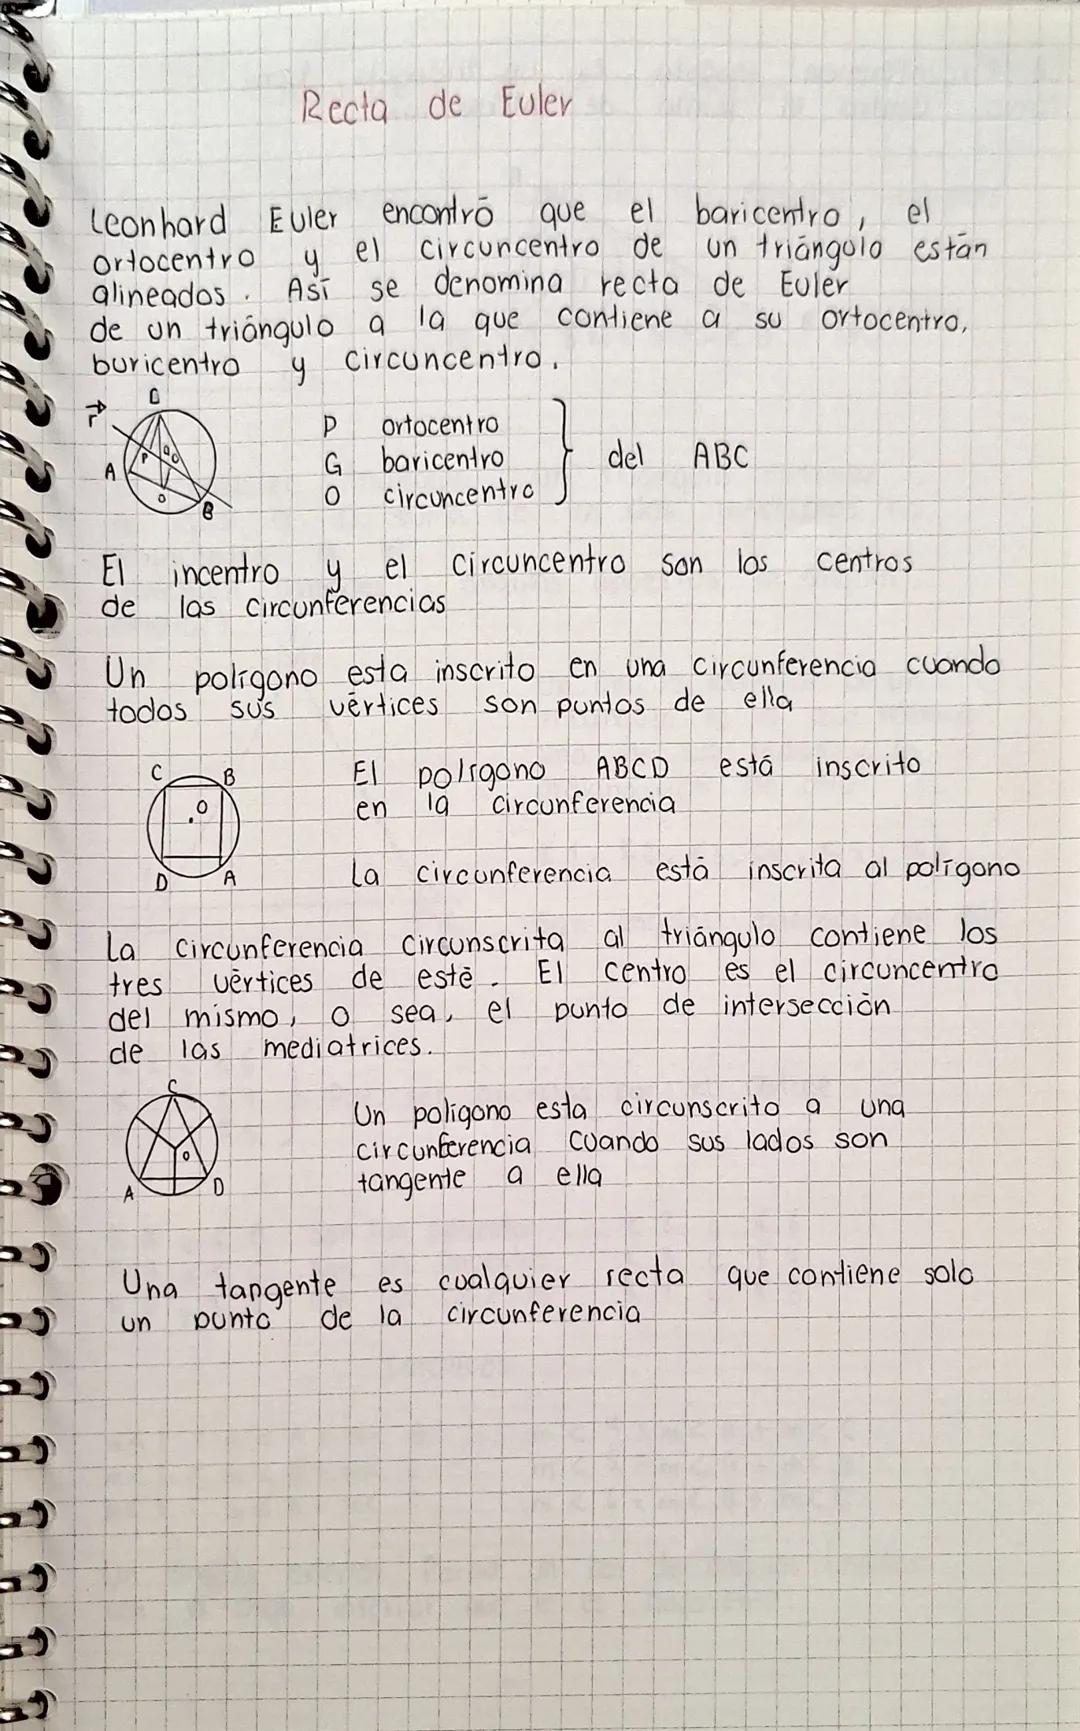 Recta de Euler
Leonhard Euler encontró que el baricentro, el
ortocentro y el circuncentro de un triángulo están
alineados. Así se denomina recta de Euler
de un triángulo a la que contiene a su ortocentro,
buricentro y circuncentro.
r
A
P
B
P ortocentro
G baricentro
O circuncentro
del ABC
El incentro y el circuncentro son los centros
de las circunferencias
Un polígono esta inscrito en una circunferencia cuando
todos sus vértices son puntos de ella
C B
O
D A
El polígono ABCD está inscrito
en la circunferencia
La circunferencia está inscrita al polígono
La circunferencia circunscrita al triángulo contiene los
tres vértices de esté. El centro es el circuncentro
del mismo, o sea, el punto de intersección
de las mediatrices.
C
O
A D
Un poligono esta circunscrito a una
circunferencia cuando sus lados son
tangente a ella
Una tangente es cualquier recta que contiene solo
un punto de la circunferencia